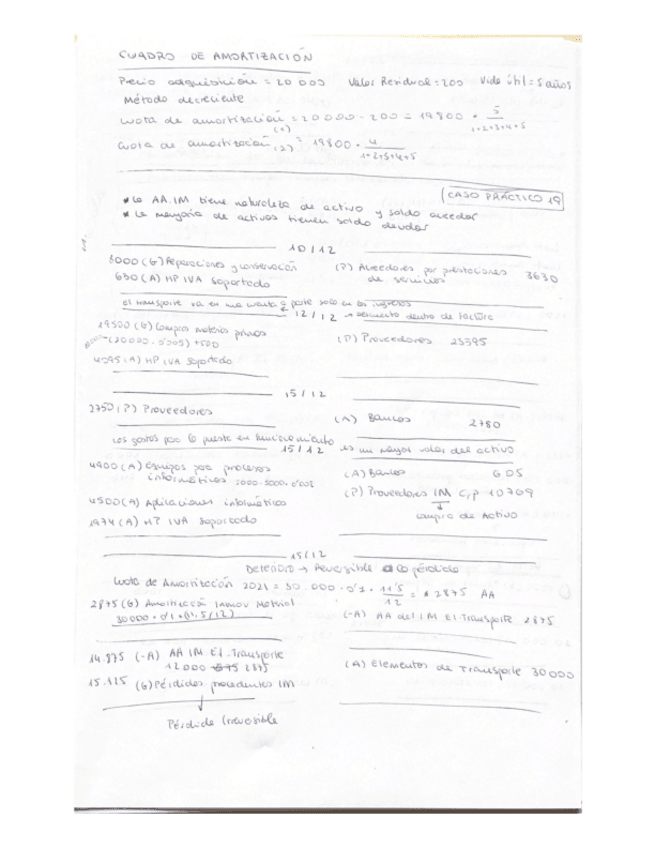 CUADRO DE AMORTIZACIÓN
Precio adquisición = 20 000 Valor Residual = 200 Vida útil = 5 años
Método decreciente
Cuota de amortización (1) = 20 000 - 200 = 19800 · 5/1+2+3+4+5
Cuota de amortización (2) = 19800 · 4/1+2+3+4+5
CASO PRÁCTICO 19
* La AA.IM tiene naturaleza de activo y saldo acreedor
* La mayoria de activos tienen saldo deudor
10/12
3000 (G) Reparaciones y conservación (P) Acreedores por prestaciones de servicios 3630
630 (A) HP IVA Soportado
El transporte va en una cuenta aparte solo en los ingresos
12/12 → descuento dentro de factura
19500 (G) Compras materias primas (P) Proveedores 23595
(20000 · 0'05) + 500
4095 (A) HP IVA Soportado
15/12
2750 (P) Proveedores (A) Bancos 2750
Los gastos para la puesta en funcionamiento es un mayor valor del activo
15/12
4900 (A) Equipos para procesos informáticos (A) Bancos 605
5000-5000·0'02
(P) Proveedores IM c/p 10769
4500 (A) Aplicaciones informáticas
compra de Activo
1974 (A) HP IVA Soportado
15/12
Deterioro → Reversible la pérdida
Cuota de Amortización 2021 = 30.000 · 0'1 · 11'5/12 = 2875 AA
2875 (G) Amortización Inmov Material (-A) AA del IM El.Transporte 2875
30000 · 0'1 · (11,5/12)
14.875 (-A) AA IM El Transporte (A) Elementos de Transporte 30000
12000 2875
15.125 (G) Pérdidas procedentes IM
Pérdida Irreversible